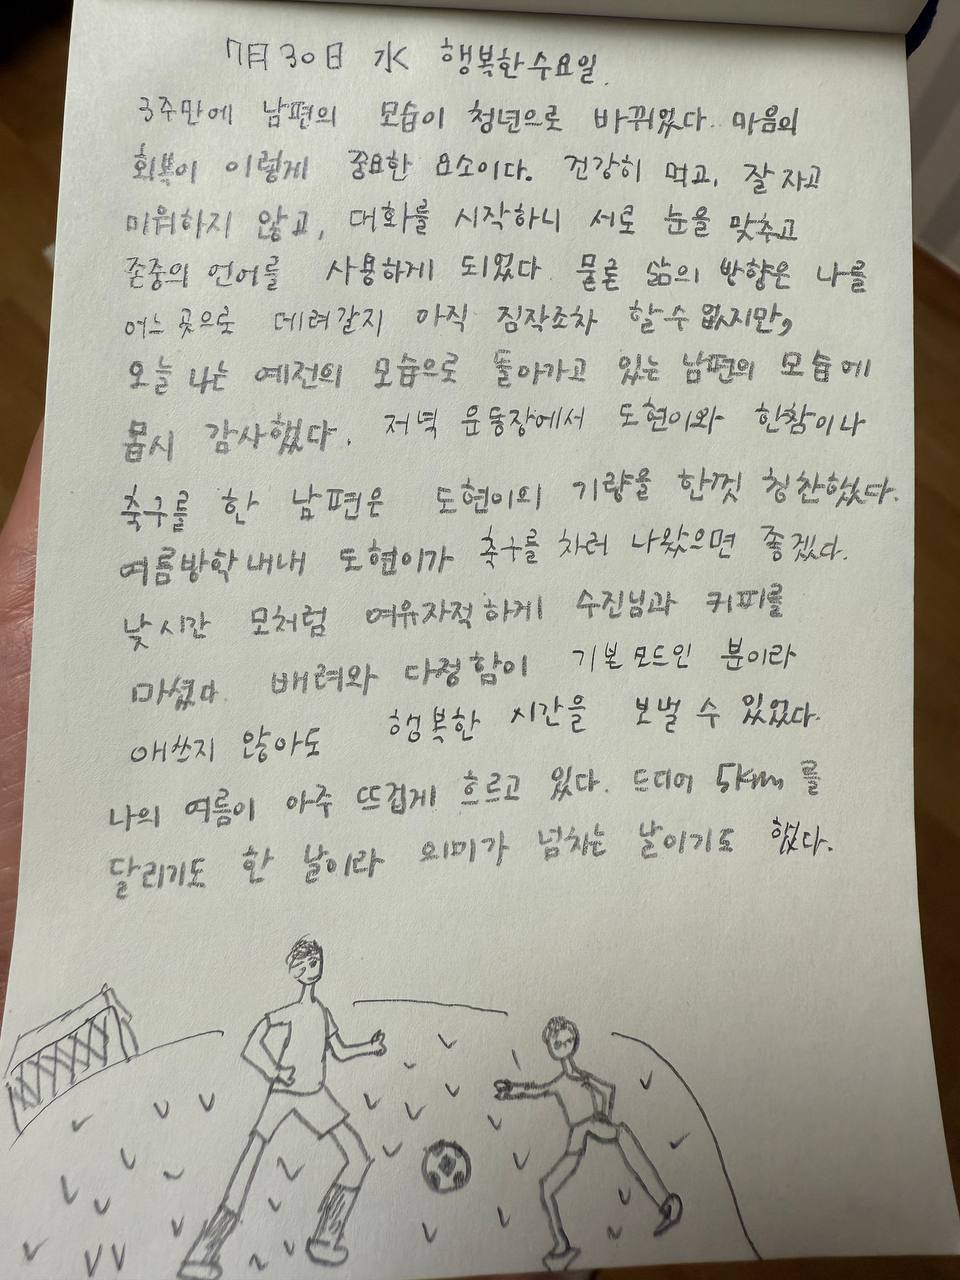 7月 30日 水 행복한 수요일.
3주만에 남편의 모습이 청년으로 바뀌었다. 마음의
회복이 이렇게 중요한 요소이다. 건강히 먹고, 잘 자고
미워하지 않고, 대화를 시작하니 서로 눈을 맞추고
존중의 언어를 사용하게 되었다. 물론 삶의 방향은 나를
어느 곳으로 데려갈지 아직 짐작조차 할 수 없지만,
오늘 나는 예전의 모습으로 돌아가고 있는 남편의 모습에
몹시 감사했다. 저녁 운동장에서 도현이와 한참이나
축구를 한 남편은 도현이의 기량을 한껏 칭찬했다.
여름방학 내내 도현이가 축구를 차러 나왔으면 좋겠다.
낮시간 모처럼 여유자적하게 수진님과 커피를
마셨다. 배려와 다정함이 기본모드인 분이라
애쓰지 않아도 행복한 시간을 보낼 수 있었다.
나의 여름이 아주 뜨겁게 흐르고 있다. 드디어 5km를
달리기도 한 날이라 의미가 넘치는 날이기도 했다.